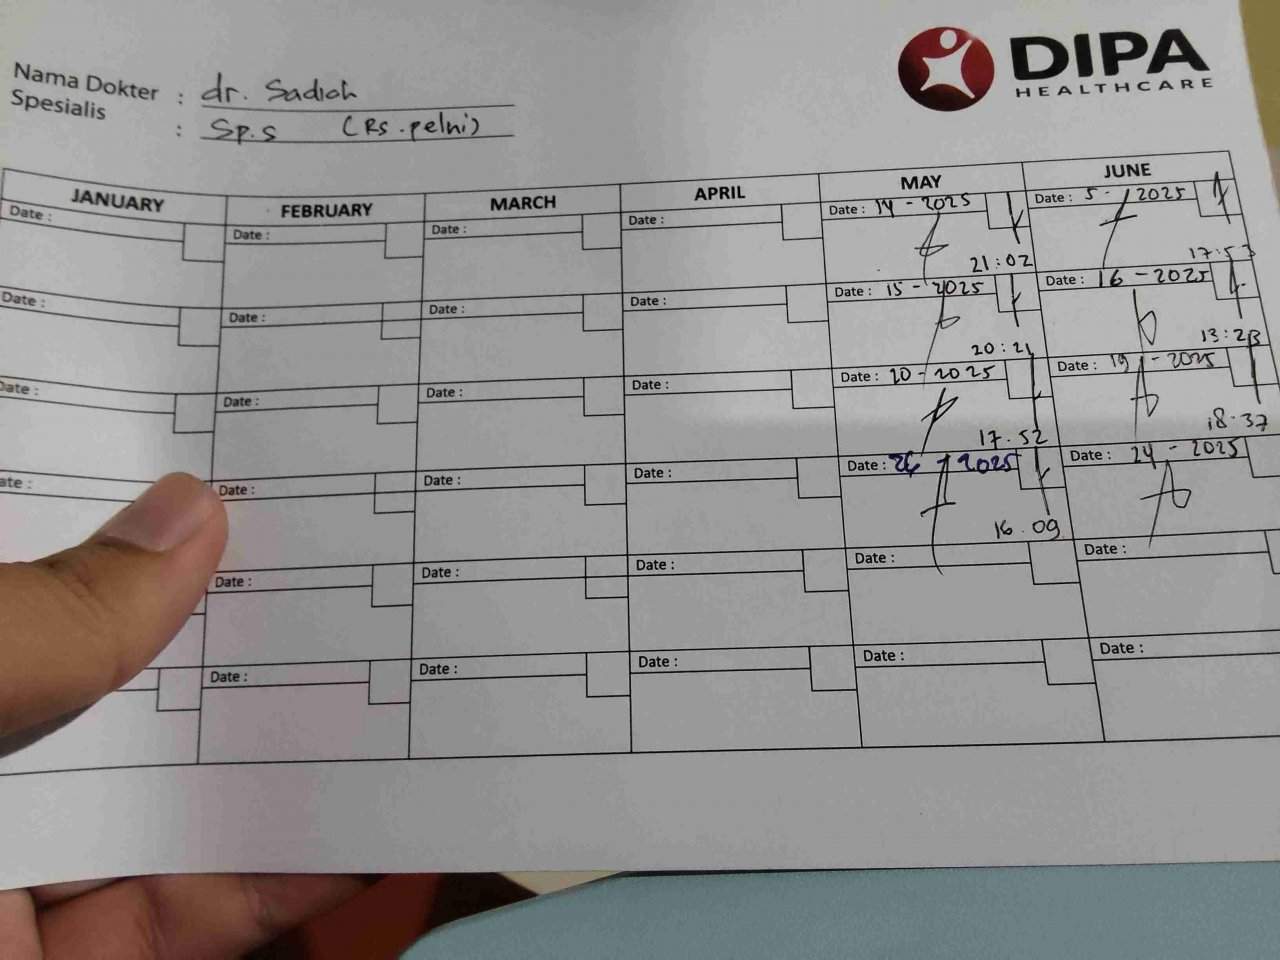 DIPA
HEALTHCARE
Nama Dokter : dr. Sadiah
Spesialis : Sp.s (Rs.pelni)
JANUARY FEBRUARY MARCH APRIL MAY JUNE
Date : Date : Date : Date : Date : 14 - 2025 Date : 5 - 2025
21:02 17.53
Date : Date : Date : Date : Date : 15 - 2025 Date : 16 - 2025
20:21 13:23
Date : Date : Date : Date : Date : 20 - 2025 Date : 19 - 2025
17.52 18.37
ate : Date : Date : Date : Date : 26 - 2025 Date : 24 - 2025
16.09
Date : Date : Date : Date : Date :
Date : Date : Date : Date : Date :